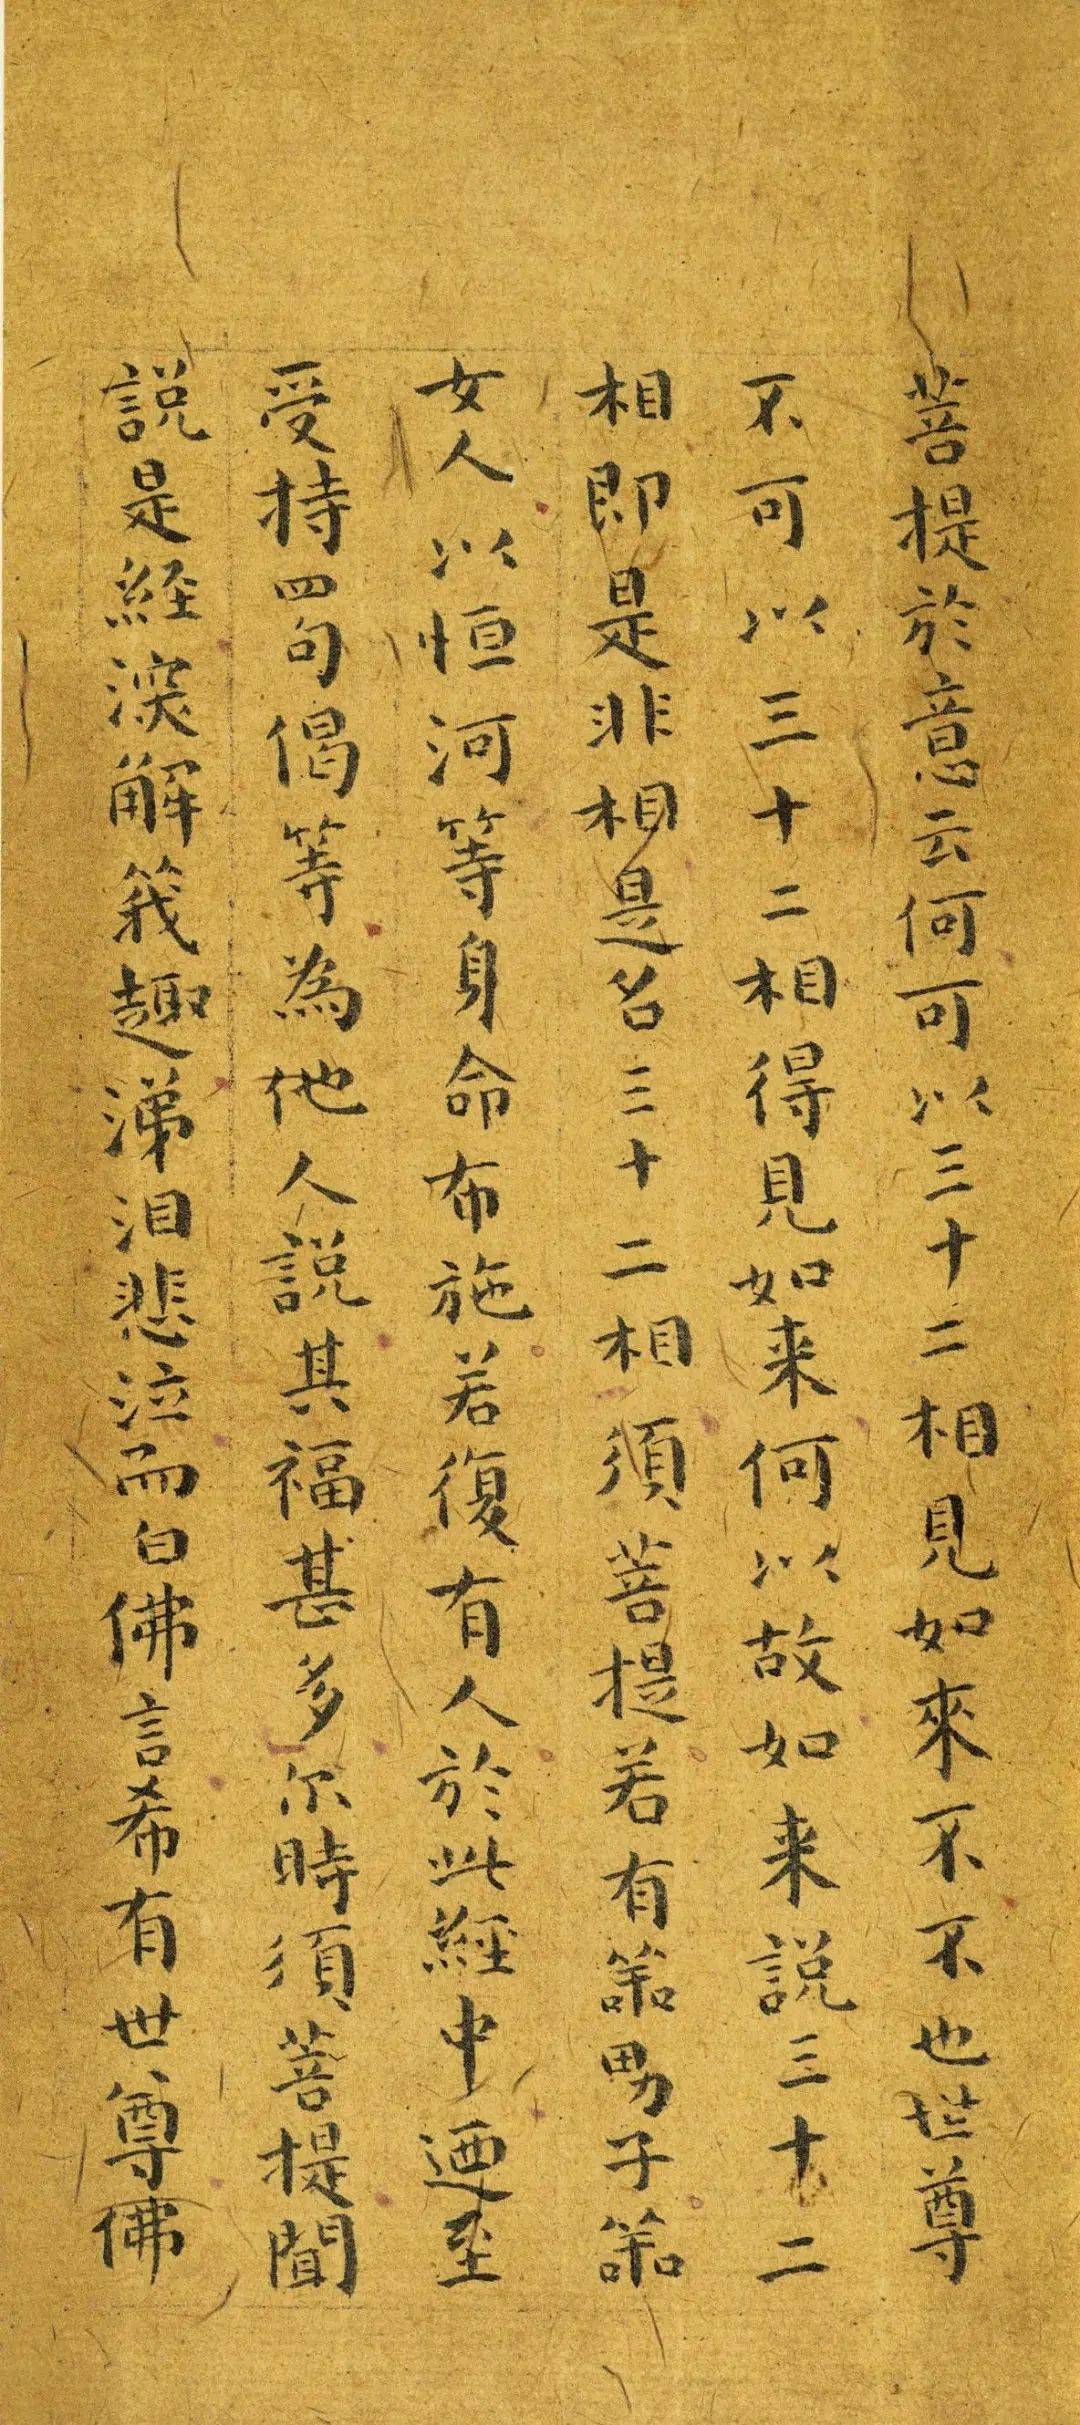 菩提於意云何可以三十二相見如來不不也世尊
不可以三十二相得見如来何以故如来説三十二
相即是非相是名三十二相須菩提若有善男子善
女人以恒河等身命布施若復有人於此經中迺至
受持四句偈等為他人説其福甚多尔時須菩提聞
説是経深解義趣涕泪悲泣而白佛言希有世尊佛